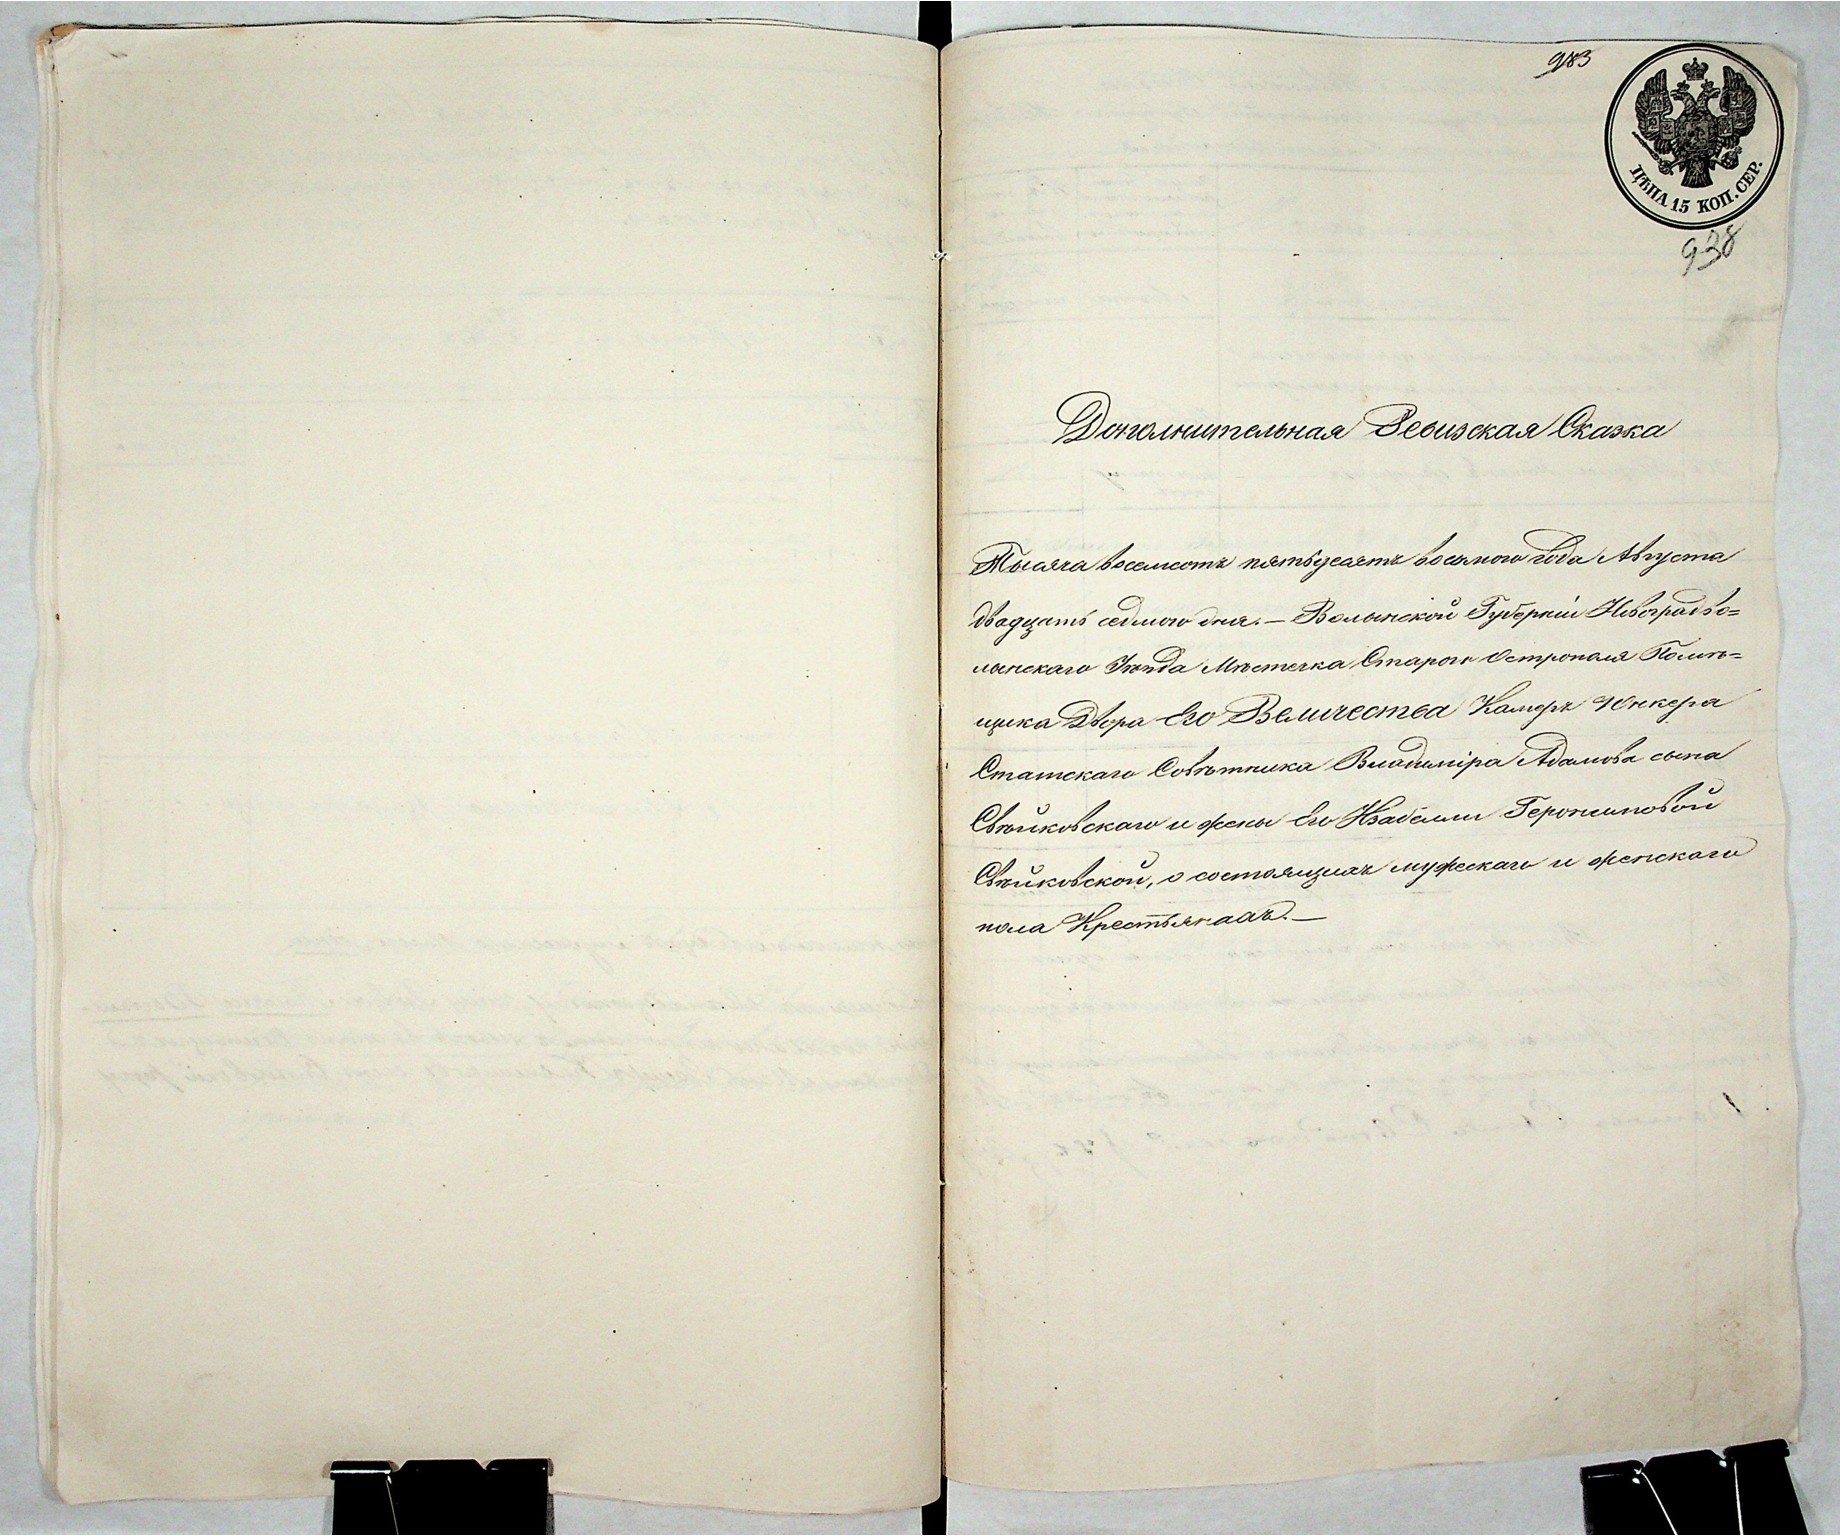 983
ЦѢНА 15 КОП. СЕР.
938
Дополнительная Ревизская Сказка
Тысяча восемсотъ пятьдесятъ восьмого года Августа
двадцать седмого дня. — Волынской Губерніи Новоградво=
лынскаго Уѣзда Мѣстечка Стараго Острополя Помѣ=
щика Двора Его Величества Камеръ Юнкера
Статскаго Совѣтника Владиміра Адамова сына
Свѣйковскаго и жены Его Изабеллы Геронимовой
Свѣйковской, о состоящихъ мужескаго и женскаго
пола Крестьянахъ. —